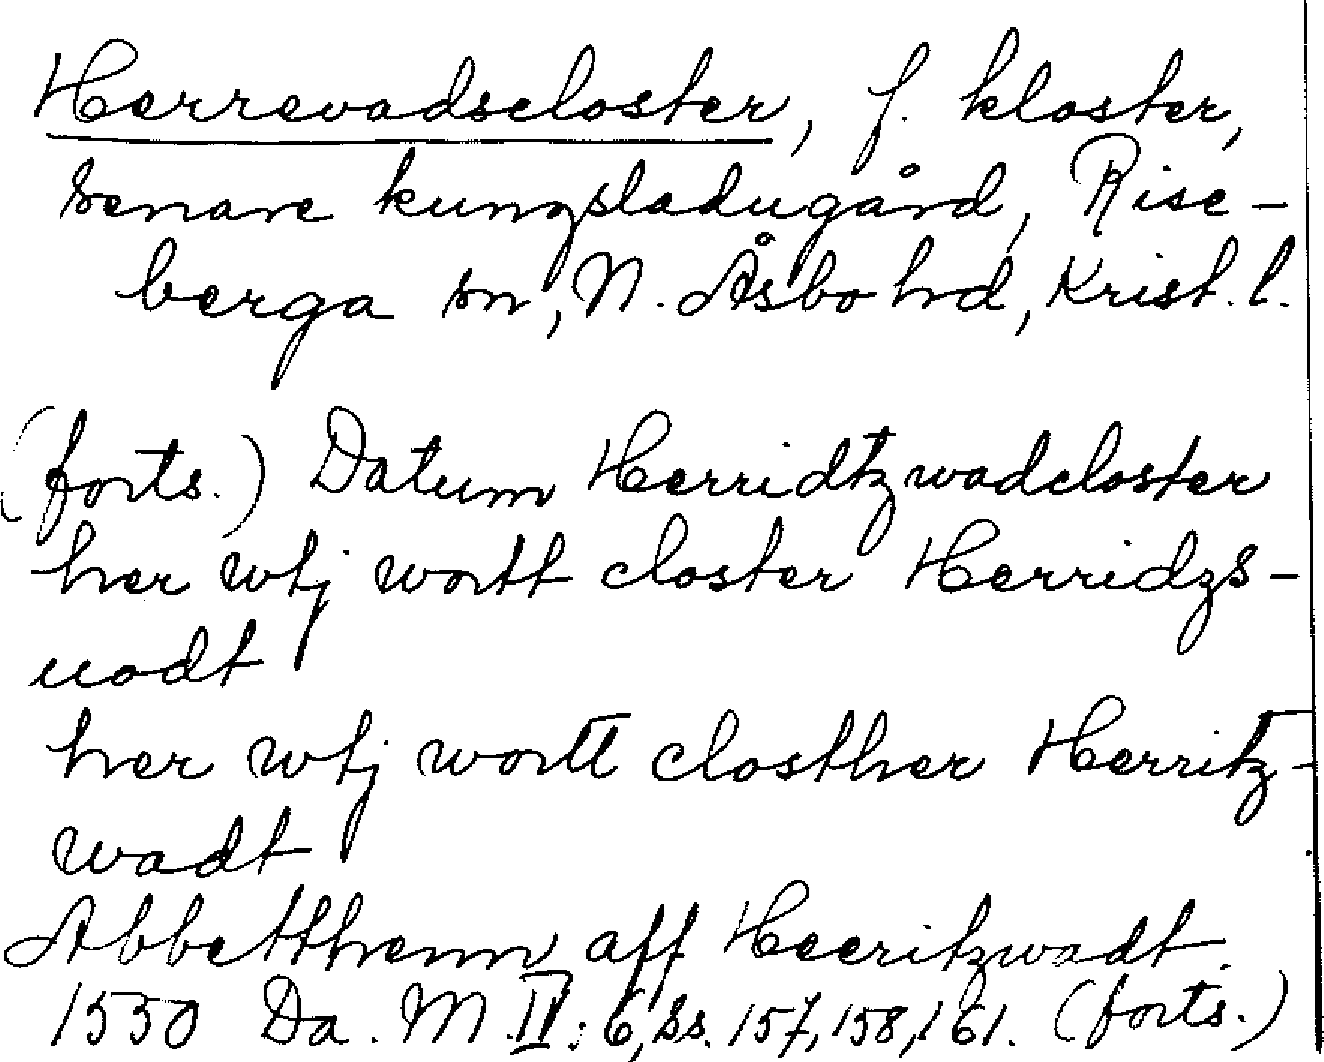 Herrevadscloster, f. kloster,
senare kungsladugård, Rise-
berga sn, N. Åsbo hd, Krist. l.
(forts.) Datum Herridtzwadcloster
her wtj wortt closter Herridzs-
uodt
her wtj wortt closther Herritz-
wadt
Abbetthenn aff Heeritzwadt.
1530 Da. M. IV: 6, ss. 157, 158, 161. (forts.)